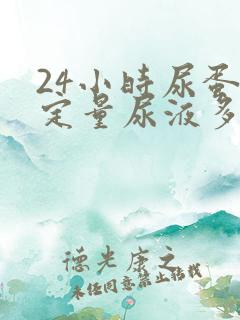 24小时尿蛋
定量尿液多
德光康之
未经同意禁止转载